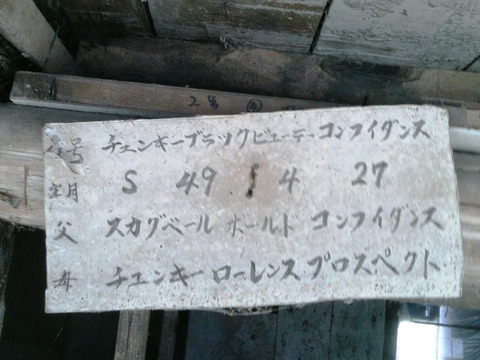 2号
名号 チェンキーブラックビューテーコンフイダンス
生月 S 49 1 4 27
父 スカグベール ホールド コンフイダンス
母 チェンキー ローレンス プロスペクト